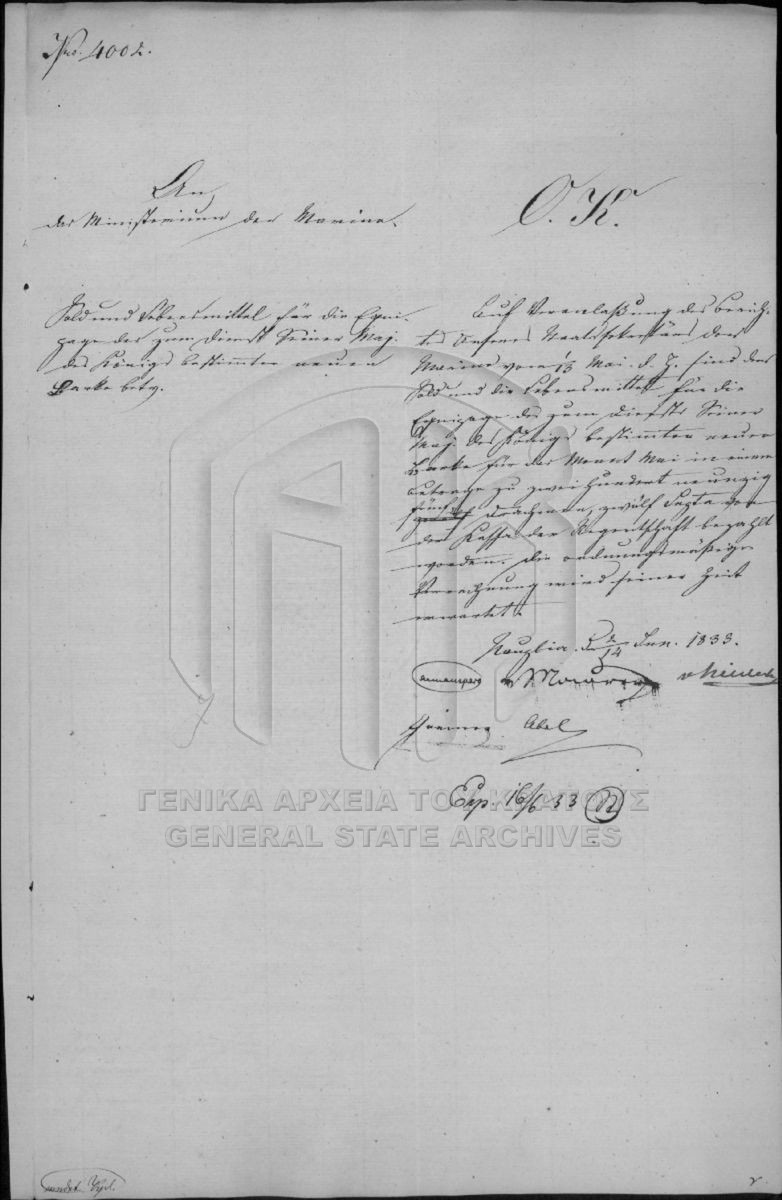 Nro. 4002.
An
das Ministerium der Marine.
O. K.
Sold und Lebensmittel für die Equi-
page der zum Dienst Seiner Maj.
des Königs bestimmten neuen
Barke betr.
Auf Veranlaßung des Berich-
tes Unseres Staatssekretärs der
Marine vom 1/13 Mai d. J. sind der
Sold und die Lebensmittel für die
Equipage der zum Dienste Seiner
Maj. des Königs bestimmten neuen
Barke für den Monat Mai in einem
Betrage zu zweihundert neunzig
fünf Drachmen, zwölf Lepta von
der Kassa der Regentschaft bezahlt
worden. Die ordnungsmäßige
Verrechnung wird seiner Zeit
erwartet.
Nauplia d. 2/14 Jun. 1833.
Armansperg v Maurer v Heideck
Greiner Abel
Exp 16/6 33
ΓΕΝΙΚΑ ΑΡΧΕΙΑ ΤΟΥ ΚΡΑΤΟΥΣ
GENERAL STATE ARCHIVES